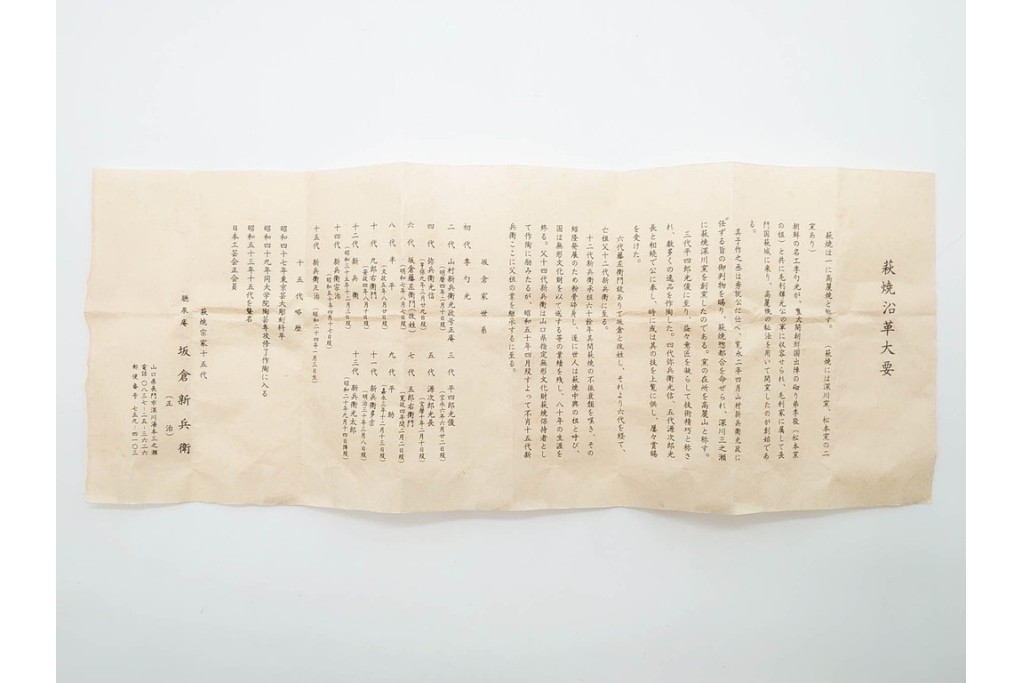 萩焼沿革大要
萩焼は一に高麗焼と称す。(萩焼には深川窯、松本窯の二
窯あり)
朝鮮の名工李勺光が、豊太閤朝鮮国出陣の砌り弟李敬(松本窯
の祖)と共に毛利輝元公の軍に収容せられ、毛利家に属して長
門国萩城に来り、高麗焼の秘法を用いて開窯したのが創始であ
る。
其子作之丞は秀就公に仕へ、寛永二年四月山村新兵衛光政に
任ずる旨の御判物を賜り、萩焼惣都合を命ぜられ、深川三之瀬
に萩焼深川窯を創業したのである。窯の在所を高麗山と称す。
三代平四郎光俊に至り、益々意匠を凝らして技術精巧と称さ
れ、数多くの逸品を作陶した。四代弥兵衛光信、五代源次郎光
長と相続で公に奉し、時に或は其の技を上覧に供し、屢々賞賜
を受けた。
六代藤左衛門故ありて坂倉と改姓し、それより六代を経て、
亡祖父十二代新兵衛に至る。
十二代新兵衛承祖六十餘年其間萩焼の不振衰頽を嘆き、その
紹隆発展のため粉骨碎身し、遂に世人は萩焼中興の祖と呼び、
国は無形文化財を以て遇する等の業績を残し、八十年の生涯を
終る。父十四代新兵衛は山口県指定無形文化財萩焼保持者とし
て作陶に励みたるが、昭和五十年四月歿すよって不肖十五代新
兵衛ここに父祖の業を継承するに至る。
坂倉家世系
初代 李勺光
二代 山村新兵衛光政号正庵 三代 平四郎光俊
(明暦四年二月十日歿) (宝永六年六月二日歿)
四代 弥兵衛光信 五代 源次郎光長
(享保九年三月廿九日歿) (宝暦十年二月十日歿)
六代 坂倉藤左衛門(改姓) 七代 五郎右衛門
(明和七年八月七日歿) (寛政四年閏二月二日歿)
八代 半平 九代 平助
(文政五年八月廿日歿) (嘉永三年十二月十三日歿)
十代 九郎右衛門 十一代 新兵衛多吉
(安政四年八月十日歿) (明治三十年三月八日歿)
十二代 新兵衛 十三代 新兵衛光太郎
(昭和三十五年十二月三日歿) (昭和二十年九月十四日陣歿)
十四代 新兵衛治平
(昭和五十年四月十七日歿)
十五代 新兵衛正治(昭和二十四年一月三日生)
十五代略歴
昭和四十七年東京芸大彫刻科卒
昭和四十九年同大学院陶芸専攻修了作陶に入る
昭和五十三年十五代を襲名
日本工芸会正会員
萩焼宗家十五代
聴泉庵 坂倉新兵衛
(正治)
山口県長門市深川湯本三之瀬
電話〇八三七-二五-三六二六
郵便番号 七五九-四一〇三